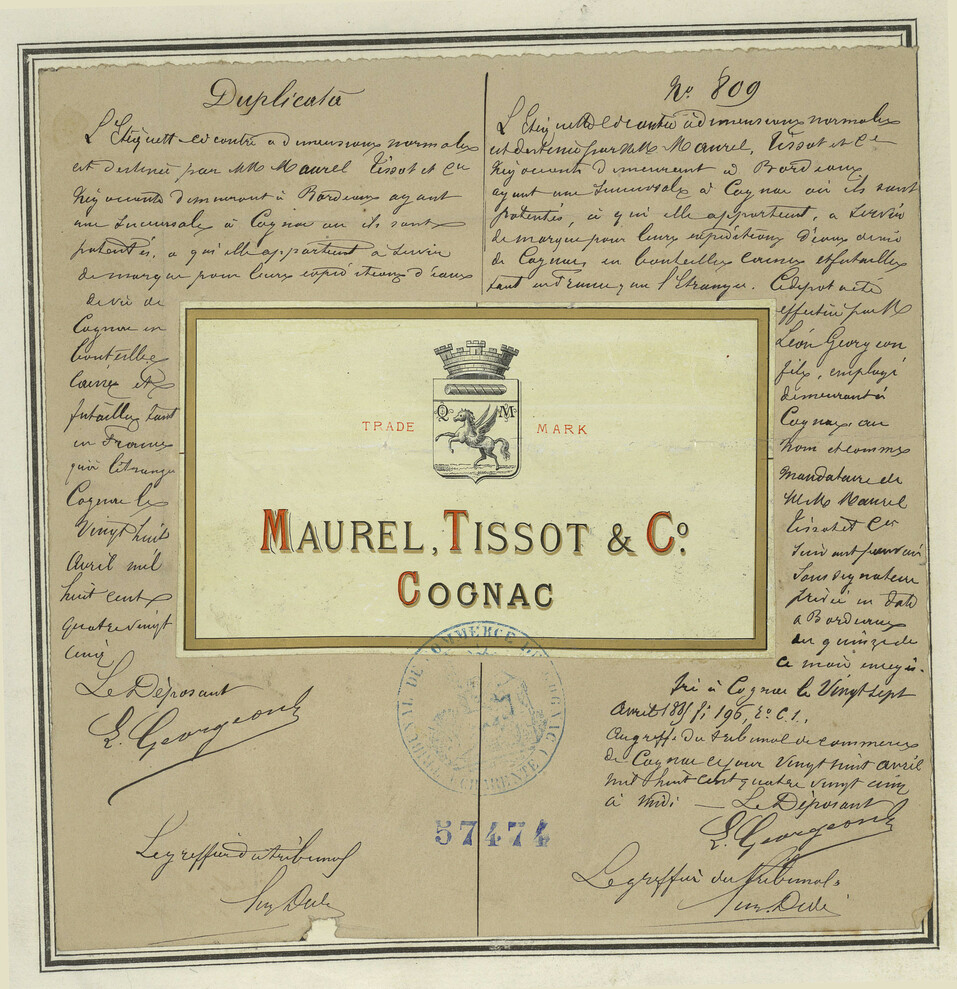 Duplicata
L'Etiquette ci contre a dimensions normales
est destinée par MM Maurel Tissot et Cie
Négociants demeurant à Bordeaux ayant
une succursale à Cognac où ils sont
patentés, a qui elle appartient a servir
de marque pour leurs expéditions d'eaux
de vie de
Cognac en
bouteilles
caisses et
futailles tant
en France
qu'à l'étranger
Cognac le
Vingt huit
Avril mil
huit cent
quatre vingt
cinq
Le Déposant
L. Georgeon
Le greffier du tribunal
No 809
L'Etiquette ci contre à dimensions normales
est destinée par MM Maurel, Tissot et Cie
Négociants demeurant à Bordeaux
ayant une succursale à Cognac où ils sont
patentés, à qui elle appartient, a servir
de marque pour leurs expéditions d'eaux de vie
de Cognac, en bouteilles caisses et futailles
tant en France qu'a l'Etranger. Ce dépot a été
effectué par M
Léon Georgeon
fils, employé
demeurant à
Cognac au
nom et comme
mandataire de
MM Maurel
Tissot et Cie
suivant pouvoir
sous signature
privée en date
a Bordeaux
du quinze de
ce mois enregis-
tré à Cognac le Vingt sept
Avril 1885 fo 196, Co C. 1.,
Au greffe du tribunal de commerce
de Cognac ce jour vingt huit avril
mil huit cent quatre vingt cinq
à midi — Le Déposant
L. Georgeon
Le greffier du tribunal
Q M
TRADE MARK
MAUREL, TISSOT & Co.
COGNAC
TRIBUNAL DE COMMERCE DE COGNAC (CHARENTE)
57474